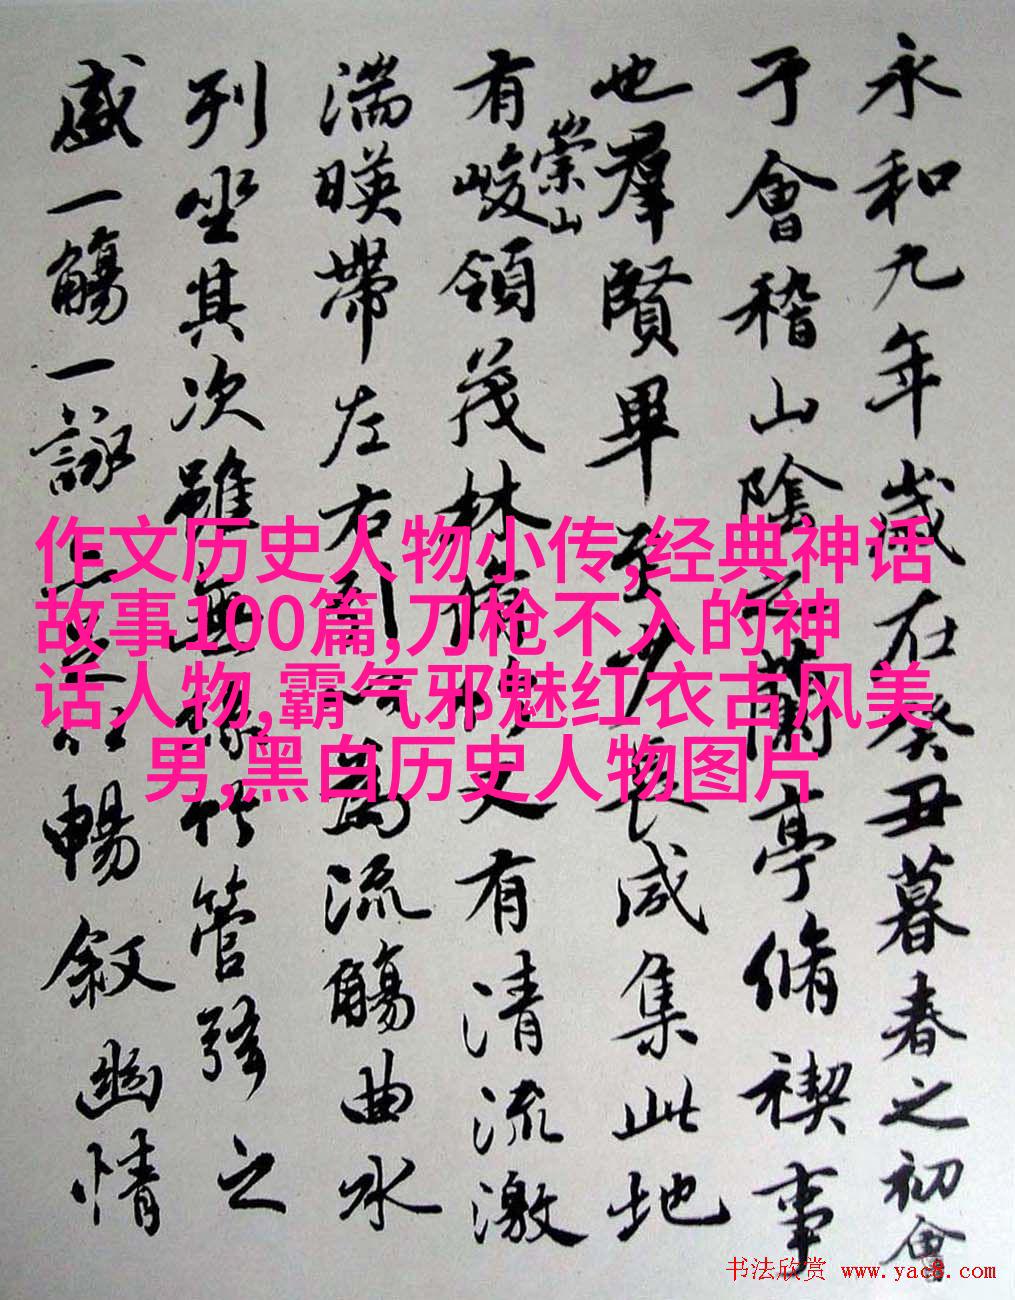 永和九年歲在癸丑暮春之初會
于會稽山陰之蘭亭脩禊事
也羣賢畢至少長咸集此地
有崇山峻領茂林脩竹又有清流激
湍暎帶左右引以為流觴曲水
列坐其次雖無絲竹管弦之
盛一觴一詠亦足以暢敘幽情
作文历史人物小传,经典神话
故事100篇,刀枪不入的神
话人物,霸气邪魅红衣古风美
男,黑白历史人物图片
书法欣赏 www.yac8.com